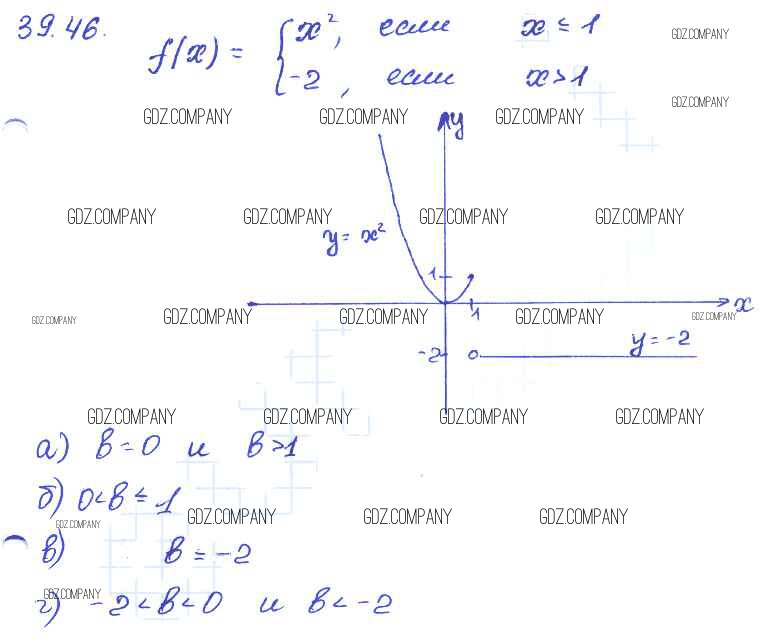 39.46.
f(x) = { x², если x ≤ 1
-2, если x > 1
GDZ.COMPANY
GDZ.COMPANY
GDZ.COMPANY GDZ.COMPANY GDZ.COMPANY
y
GDZ.COMPANY GDZ.COMPANY GDZ.COMPANY GDZ.COMPANY
y = x²
1
x
GDZ.COMPANY GDZ.COMPANY GDZ.COMPANY GDZ.COMPANY GDZ.COMPANY
1
y = -2
-2
GDZ.COMPANY GDZ.COMPANY GDZ.COMPANY GDZ.COMPANY
а) в = 0 и в > 1
б) 0 < в ≤ 1
GDZ.COMPANY GDZ.COMPANY GDZ.COMPANY GDZ.COMPANY
в) в = -2
GDZ.COMPANY
г) -2 < в < 0 и в < -2